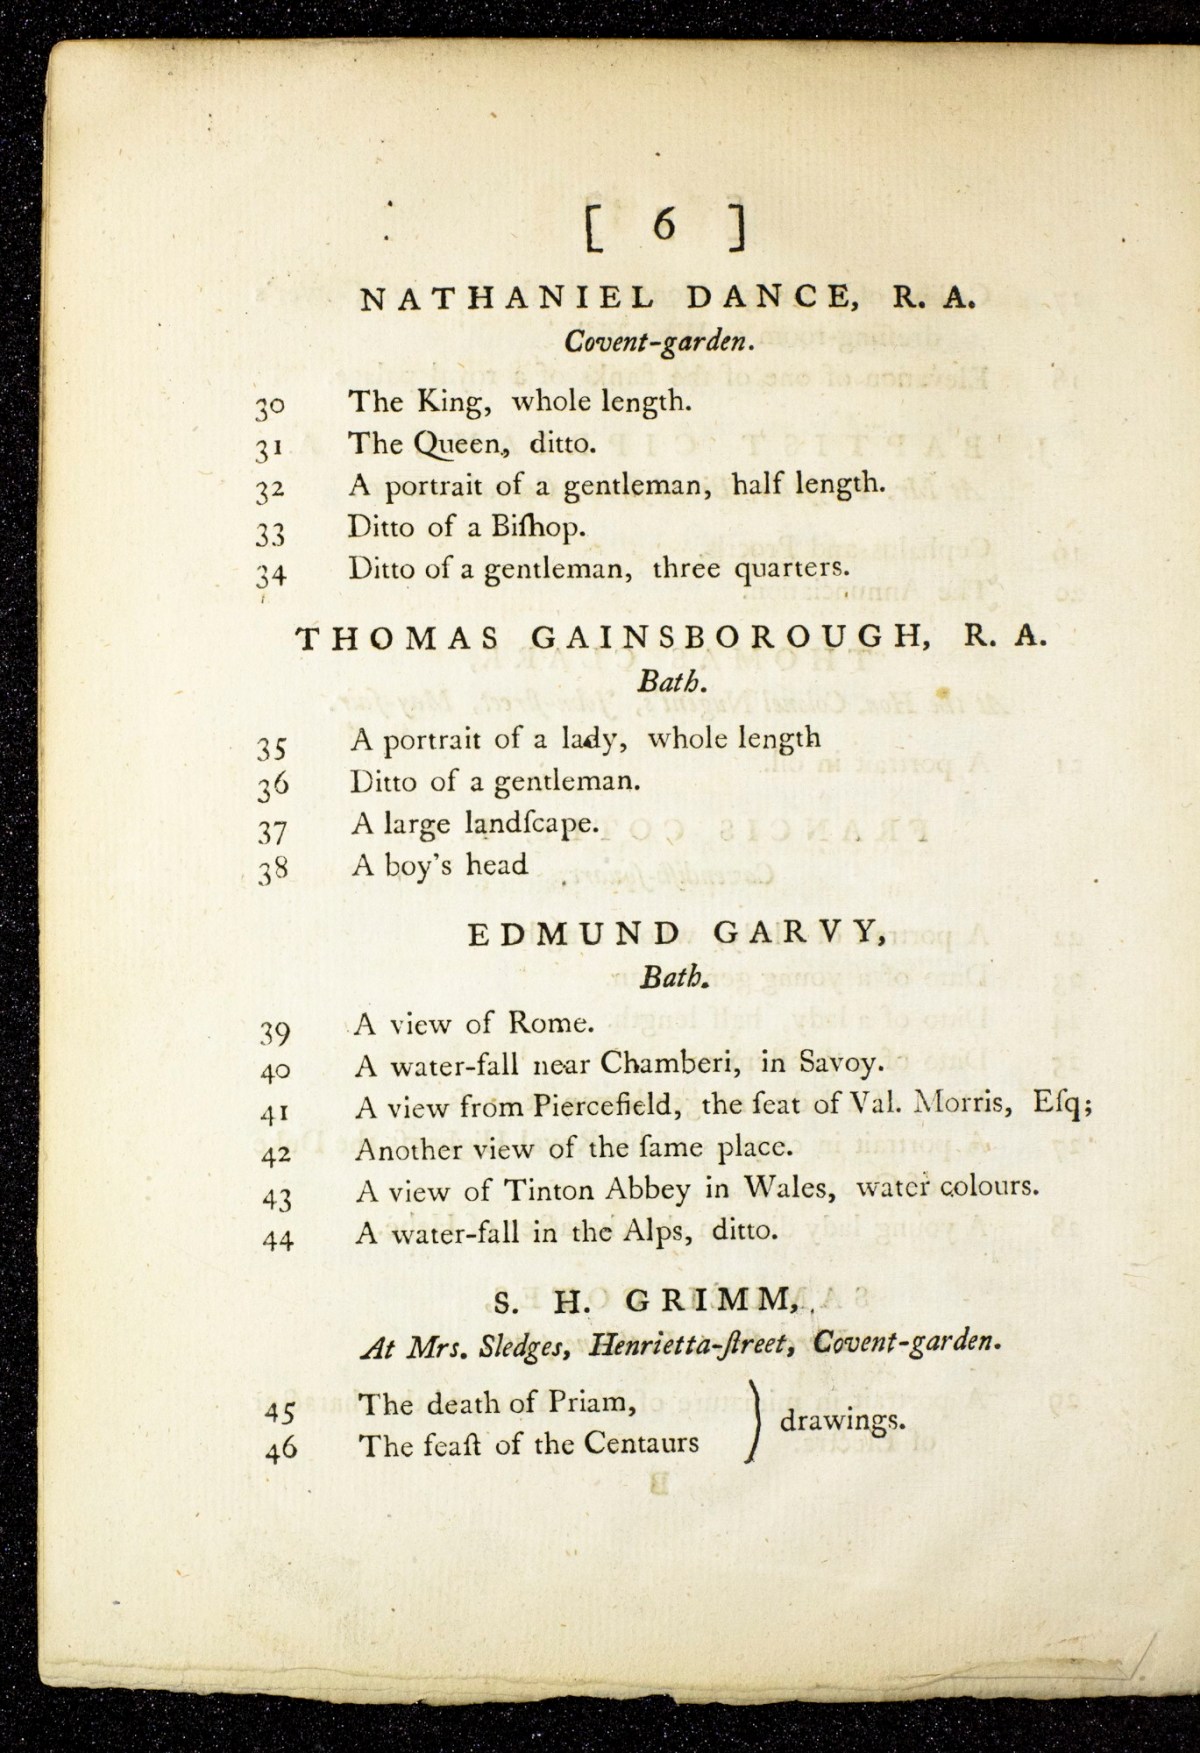 [ 6 ]
NATHANIEL DANCE, R. A.
Covent-garden.
30 The King, whole length.
31 The Queen, ditto.
32 A portrait of a gentleman, half length.
33 Ditto of a Biſhop.
34 Ditto of a gentleman, three quarters.
THOMAS GAINSBOROUGH, R. A.
Bath.
35 A portrait of a lady, whole length
36 Ditto of a gentleman.
37 A large landſcape.
38 A boy's head
EDMUND GARVY,
Bath.
39 A view of Rome.
40 A water-fall near Chamberi, in Savoy.
41 A view from Piercefield, the ſeat of Val. Morris, Eſq;
42 Another view of the ſame place.
43 A view of Tinton Abbey in Wales, water colours.
44 A water-fall in the Alps, ditto.
S. H. GRIMM,
At Mrs. Sledges, Henrietta-ſtreet, Covent-garden.
45 The death of Priam,
46 The feaſt of the Centaurs
} drawings.